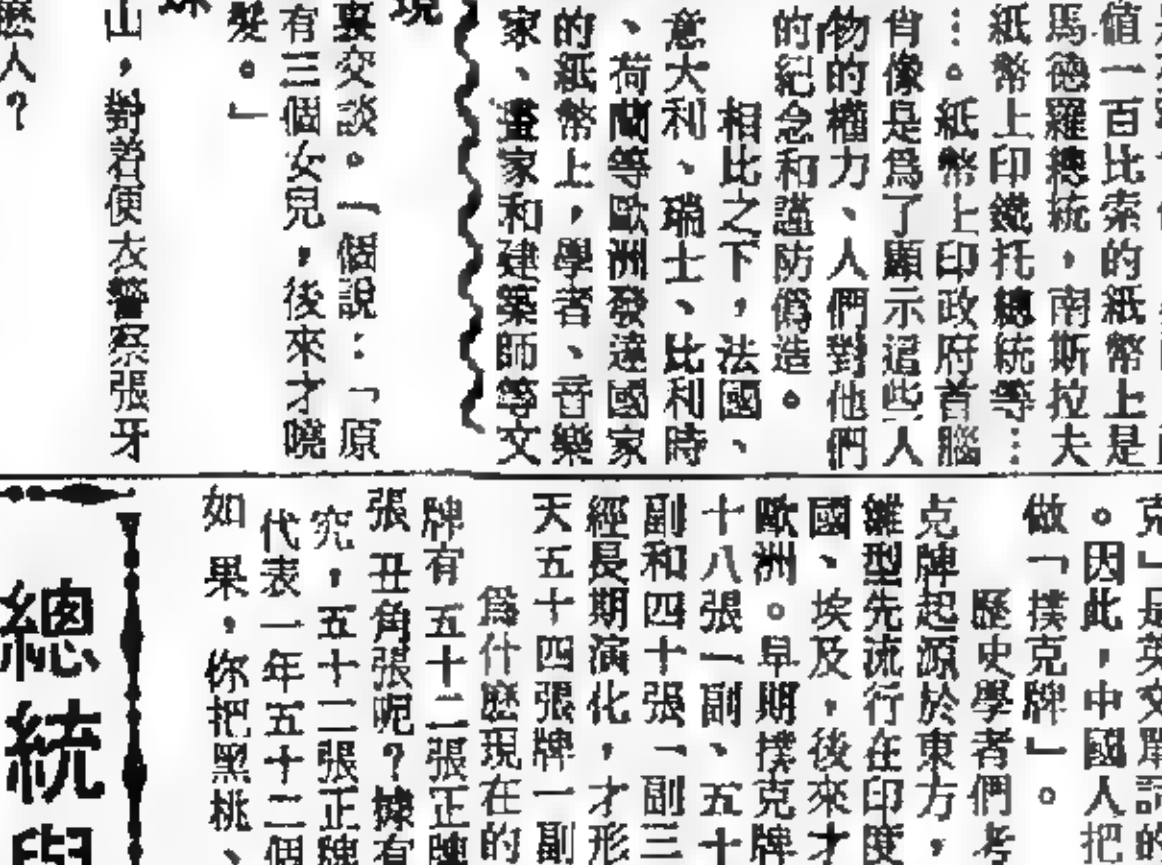 值一百比索的紙幣上是
馬德羅總統，南斯拉夫
紙幣上印鐵托總統等…
…。紙幣上印政府首腦
肖像是爲了顯示這些人
物的權力、人們對他們
的紀念和謹防僞造。
相比之下，法國、
意大利、瑞士、比利時
、荷蘭等歐洲發達國家
的紙幣上，學者、音樂
家、畫家和建築師等文
現
裏交談。一個說：「原
有三個女兒，後來才曉
髮。」
山，對着便衣警察張牙
麽人？
克」是英文單詞的
。因此，中國人把
做「撲克牌」。
歷史學者們考
克牌起源於東方，
雛型先流行在印度
國、埃及，後來才
歐洲。早期撲克牌
十八張一副、五十
副和四十張一副三
經長期演化，才形
天五十四張牌一副
爲什麽現在的
牌有五十二張正牌
張丑角張呢？據有
究，五十二張正牌
代表一年五十二個
如果，你把黑桃、
總統與